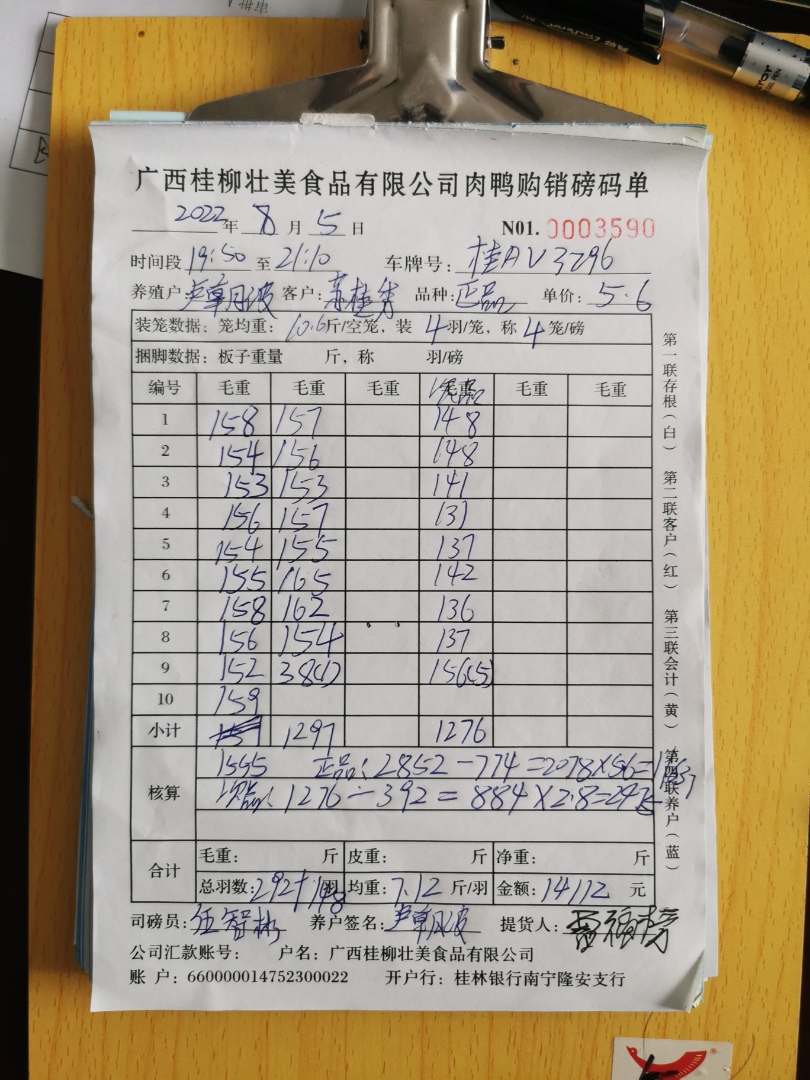 广西桂柳壮美食品有限公司肉鸭购销磅码单
2022年8月5日 N01. 0003590
时间段 19:50 至 21:10 车牌号: 桂AV3796
养殖户 客户: 品种: 正品 单价: 5.6
装笼数据: 笼均重: 10.6斤/空笼, 装 4羽/笼, 称 4笼/磅
捆脚数据: 板子重量 斤, 称 羽/磅
编号 毛重 毛重 毛重 毛重 毛重
1 158 157 148
2 154 156 148
3 153 153 141
4 156 157 131
5 154 155 137
6 155 165 142
7 158 162 136
8 156 154 137
9 152 38(1) 156(5)
10 159
小计 1297 1276
核算 1555 正品: 2852-774=2078×5.6=
次品: 1276-392=884×2.8=
合计 毛重: 斤 皮重: 斤 净重: 斤
总羽数: 292+148羽 均重: 7.12斤/羽 金额: 14112元
司磅员: 养户签名: 提货人:
公司汇款账号: 户名: 广西桂柳壮美食品有限公司
账 户: 660000014752300022 开户行: 桂林银行南宁隆安支行
第一联存根(白) 第二联客户(红) 第三联会计(黄) 第四联养户(蓝)